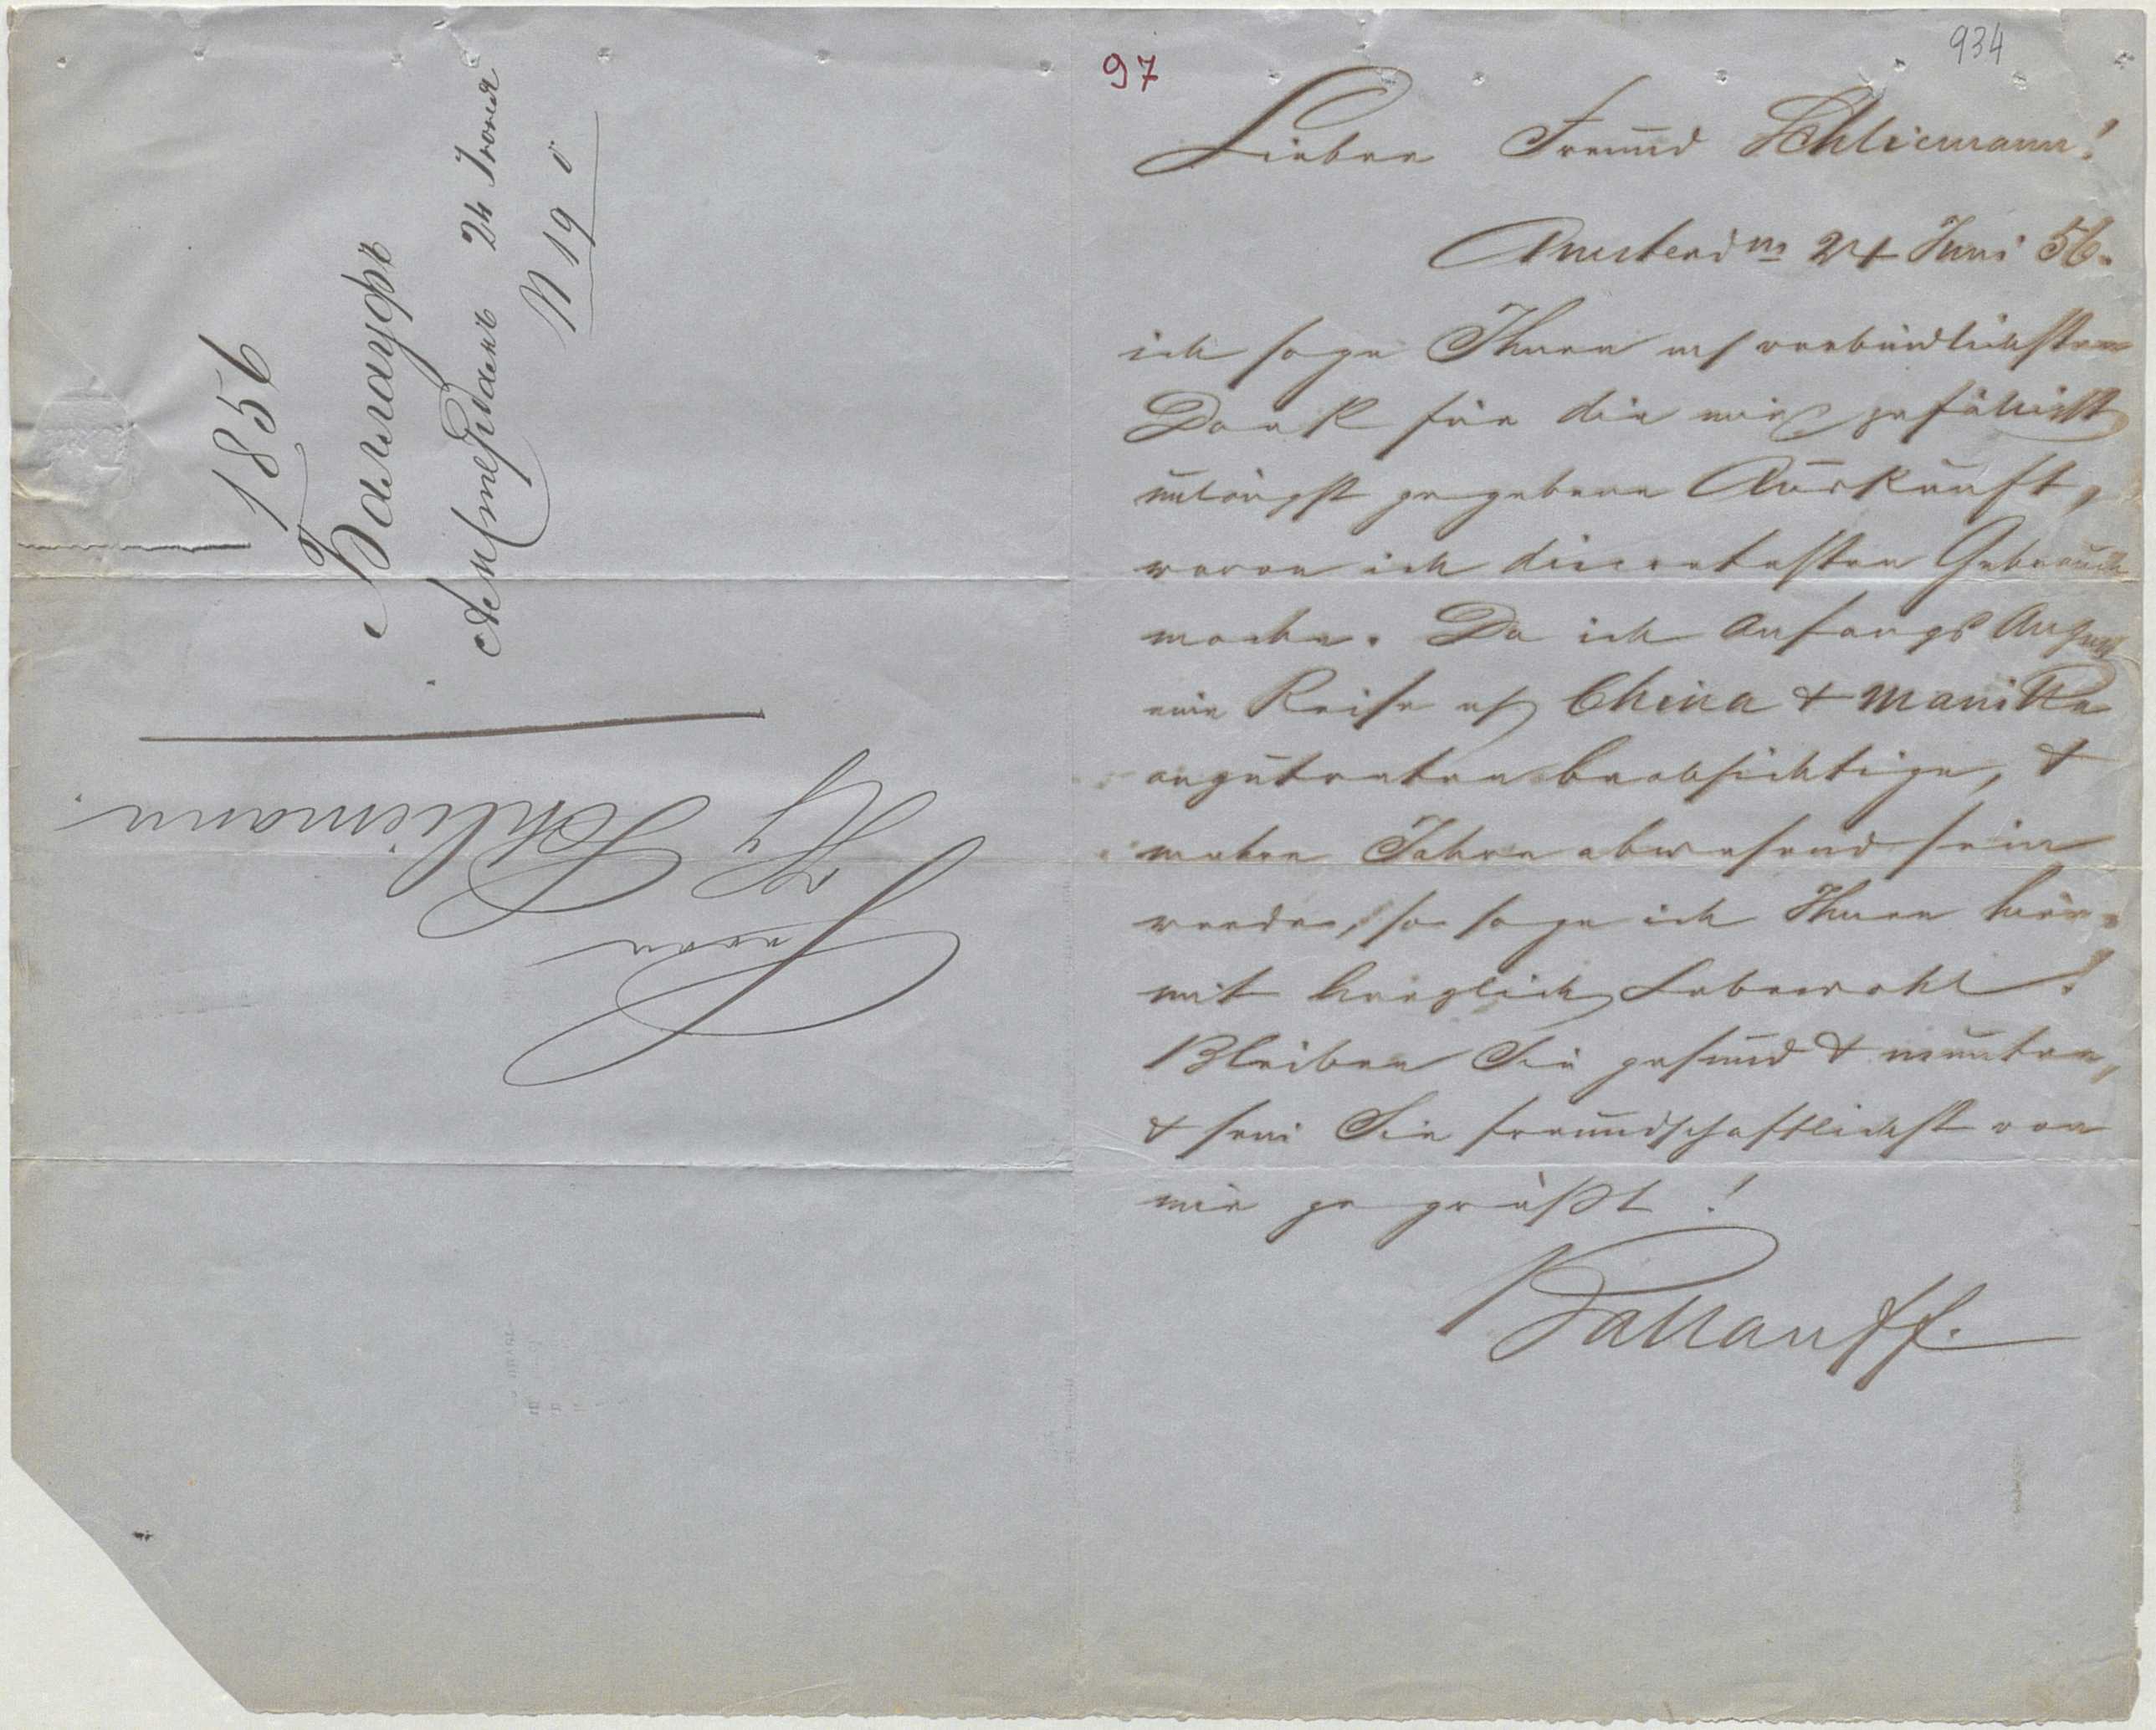 1856
Баллауфъ
Амстердамъ 24 Iюня
N 190
Herrn
Hy Schliemann
97
934
Lieber Freund Schliemann!
Amsterdm 24 Juni 56.
ich sage Ihnen m/ verbindlichsten
Dank für die mir gefälligst
unlängst gegebene Auskunft,
wovon ich discretesten Gebrauch
mache. Da ich Anfangs August
eine Reise n/ China & Manilla
anzutreten beabsichtige, &
mehre Jahre abwesend sein
werde, so sage ich Ihnen hier-
mit herzlich Lebewohl!
Bleiben Sie gesund & munter,
& sein Sie freundschaftlichst von
mir gegrüßt!
Ballauff.